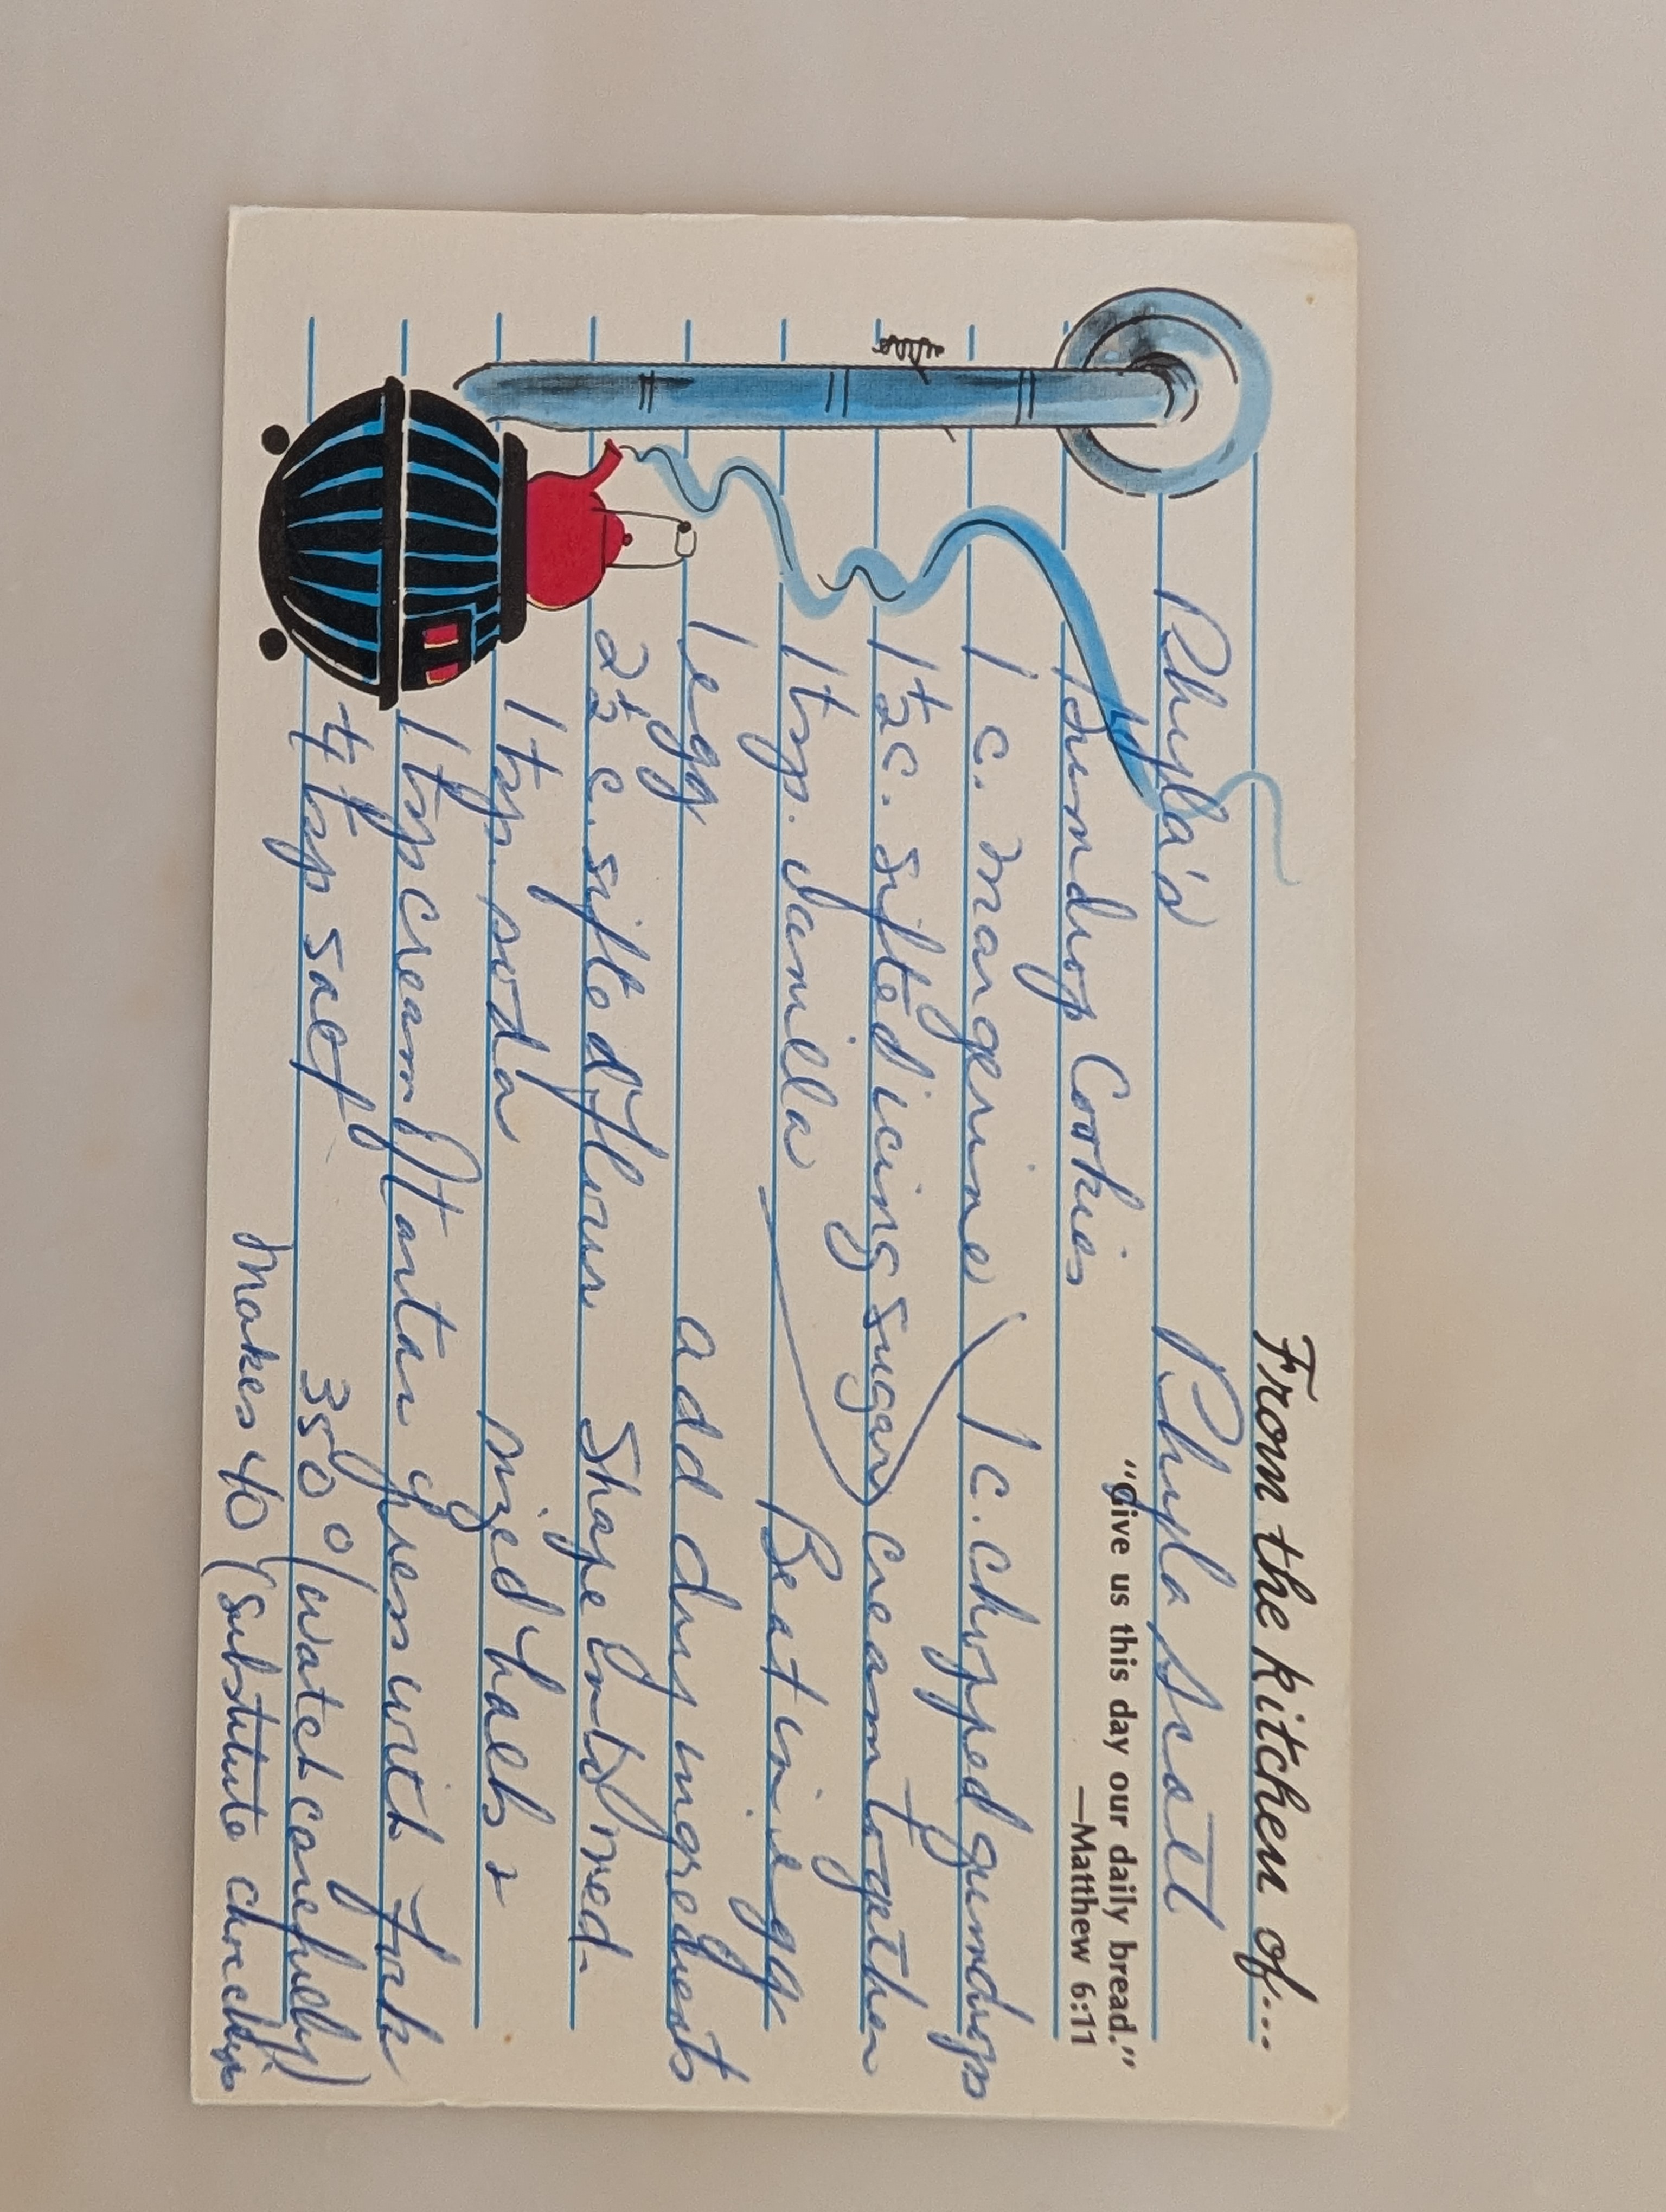 From the kitchen of...
Phyla's Phyla Scott
"Give us this day our daily bread."
Gumdrop Cookies
—Matthew 6:11
1 c. margerine 1 c. chopped gumdrops
1½ c. sifted icing sugar cream together
1 tsp. vanilla Beat in egg
1 egg add dry ingredients
2½ c. sifted flour Shape into med-
1 tsp. soda sized balls &
1 tsp cream of tartar press with fork
¼ tsp salt 350° (watch carefully)
Makes 40 (substitute choc chips